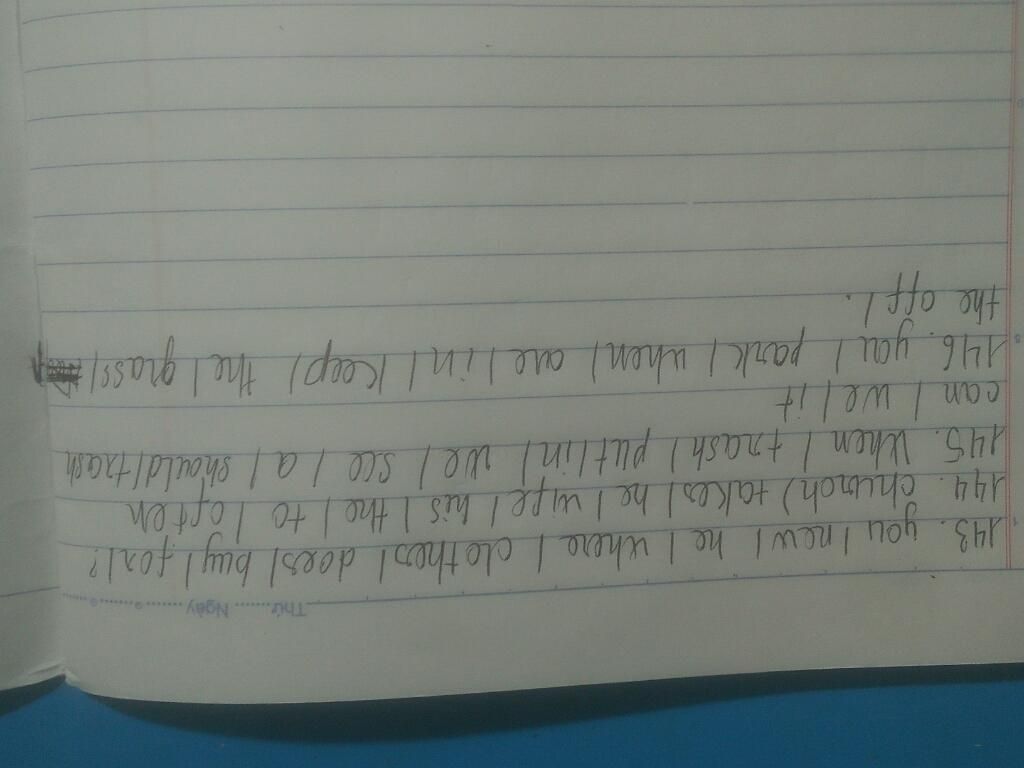 Thứ......... Ngày.....................
143. you / new / he / where / clothes / does / buy / for / ?
144. church / takes / he / wife / his / the / to / often
145. When / trash / put / in / we / see / a / should / trash
can / we / it
146. you / park / when / are / in / keep / the / grass /
the off / .